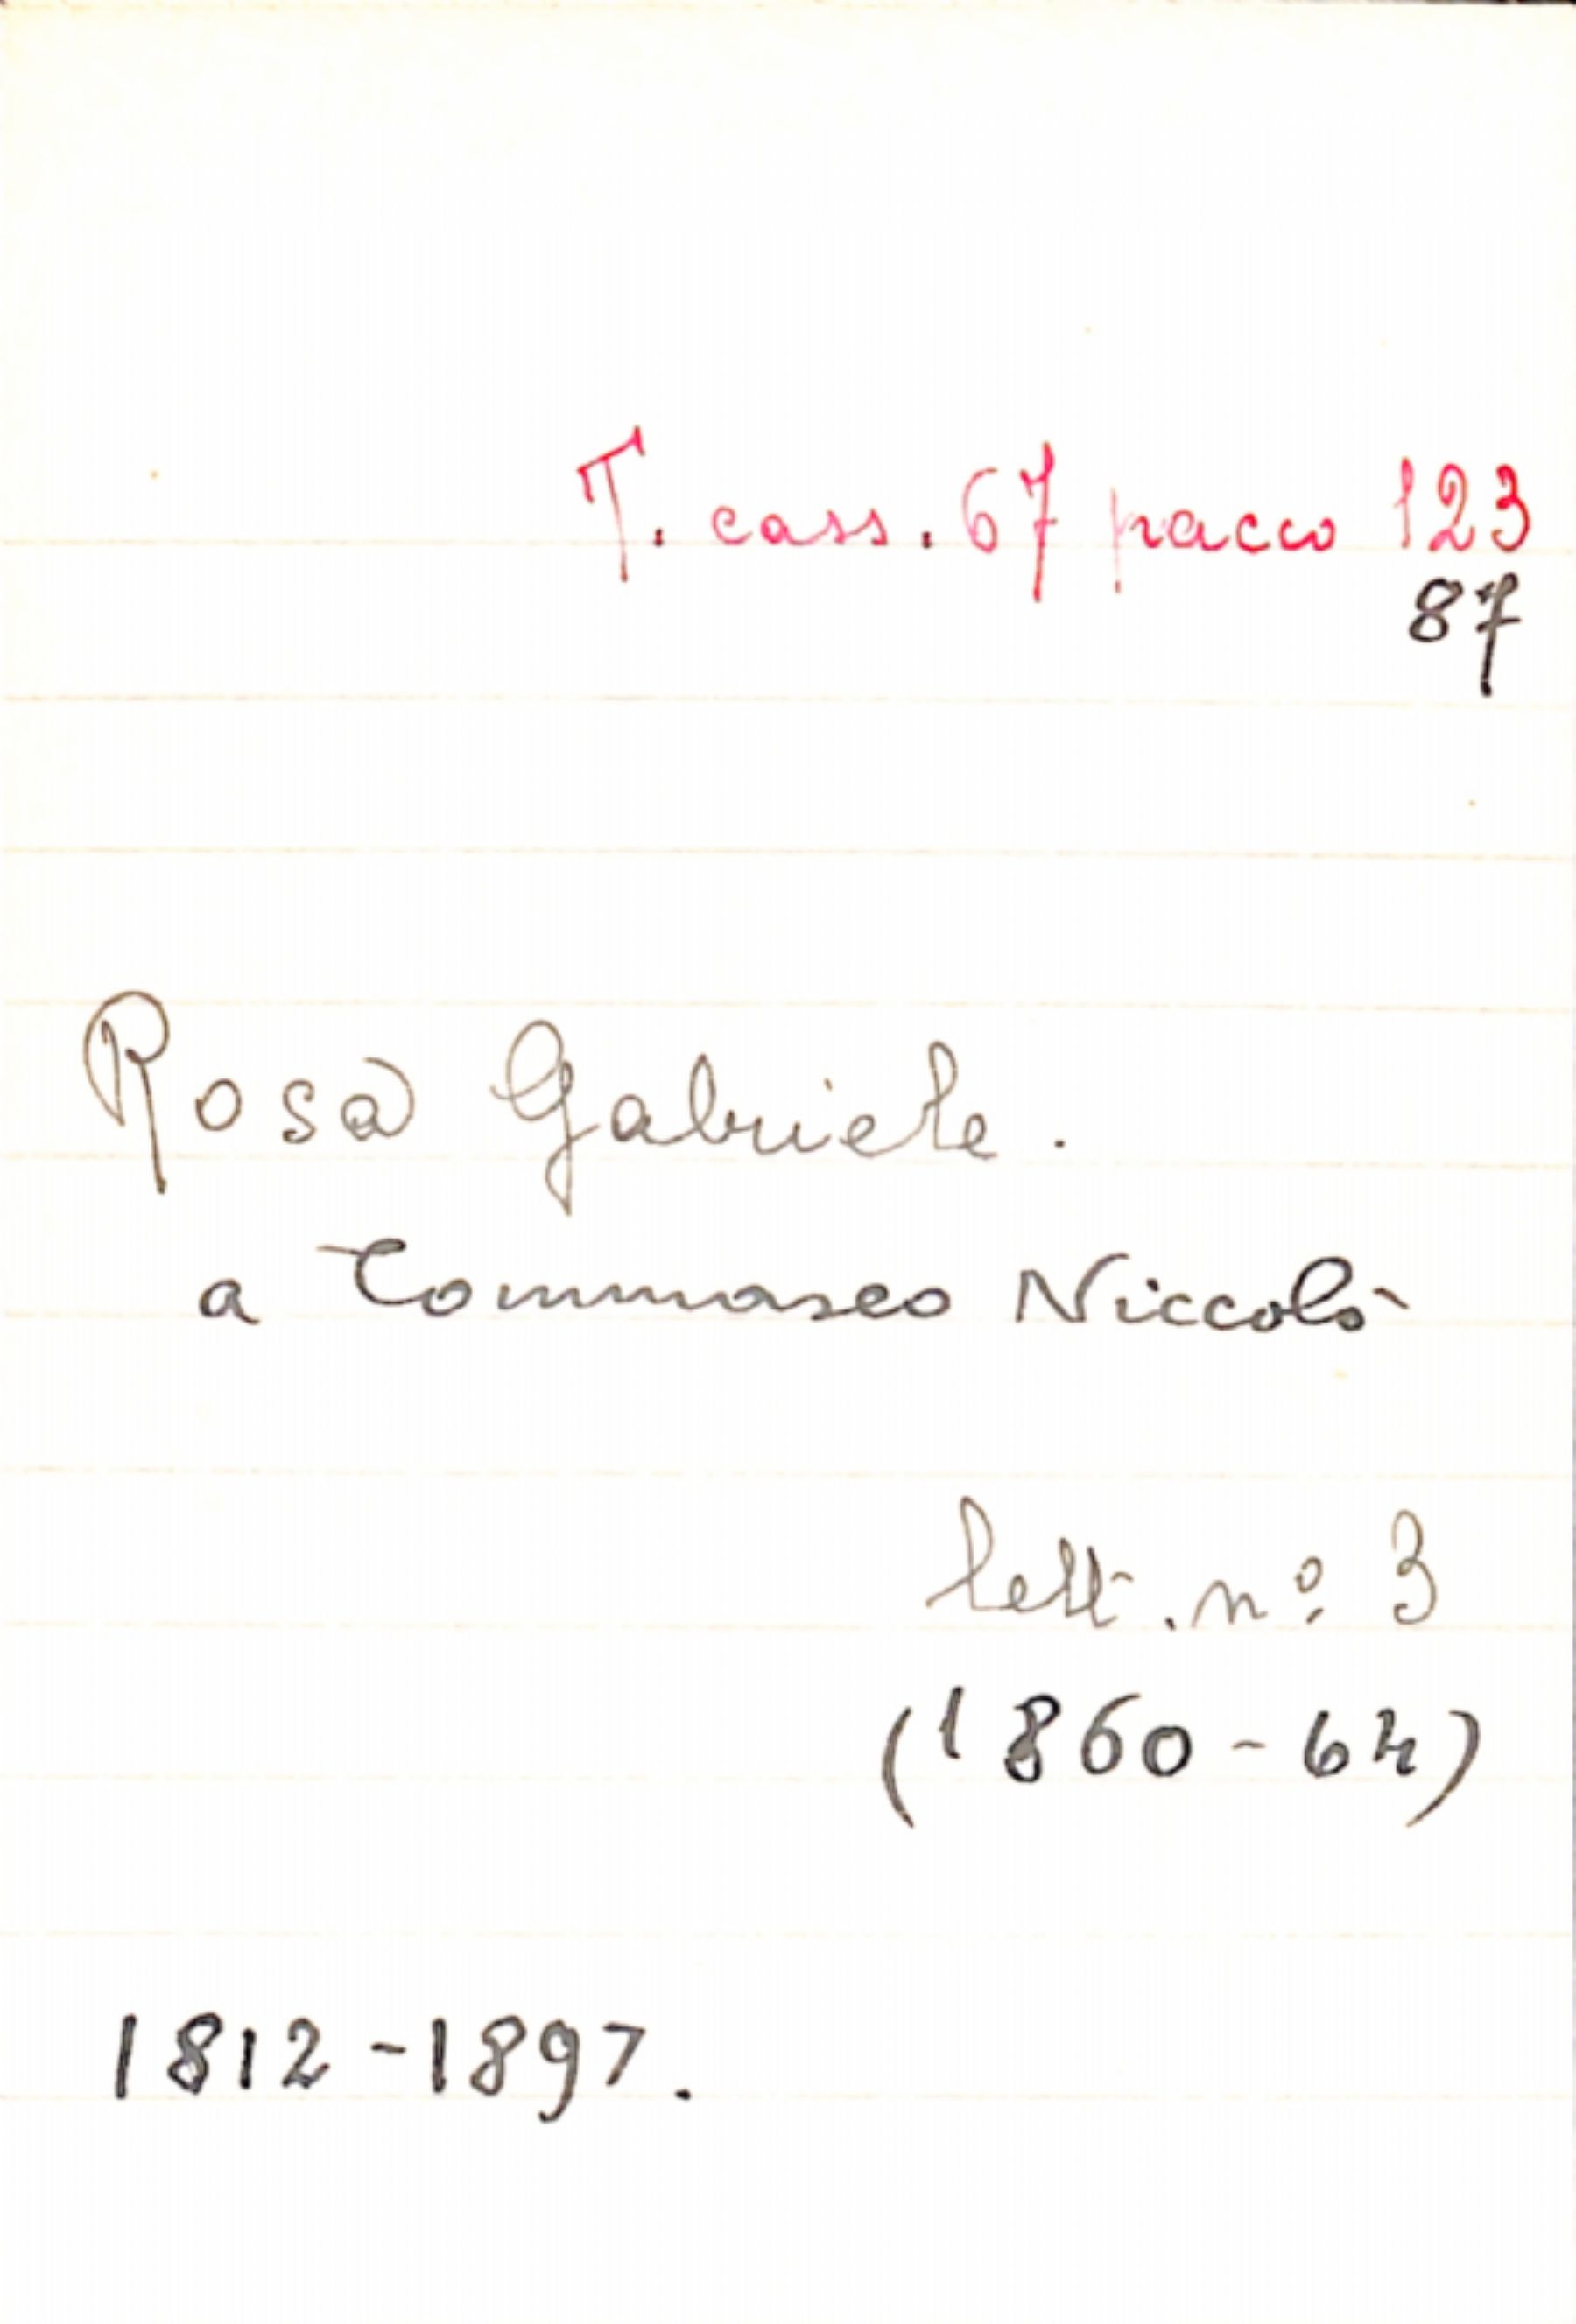 T. cass. 67 pacco 123
87
Rosa Gabriele.
a Tommaseo Niccolò
lett. nº. 3
(1860-64)
1812-1897.